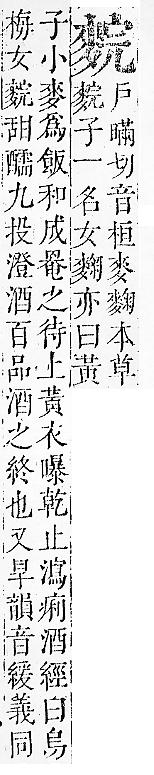 䴷
戶瞞切音桓麥麴本草
䴷子一名女麴亦曰黃
子小麥爲飯和成罨之待上黃衣曝乾止瀉痢酒經曰烏
梅女䴷甜醹九投澄酒百品酒之終也又旱韻音緩義同